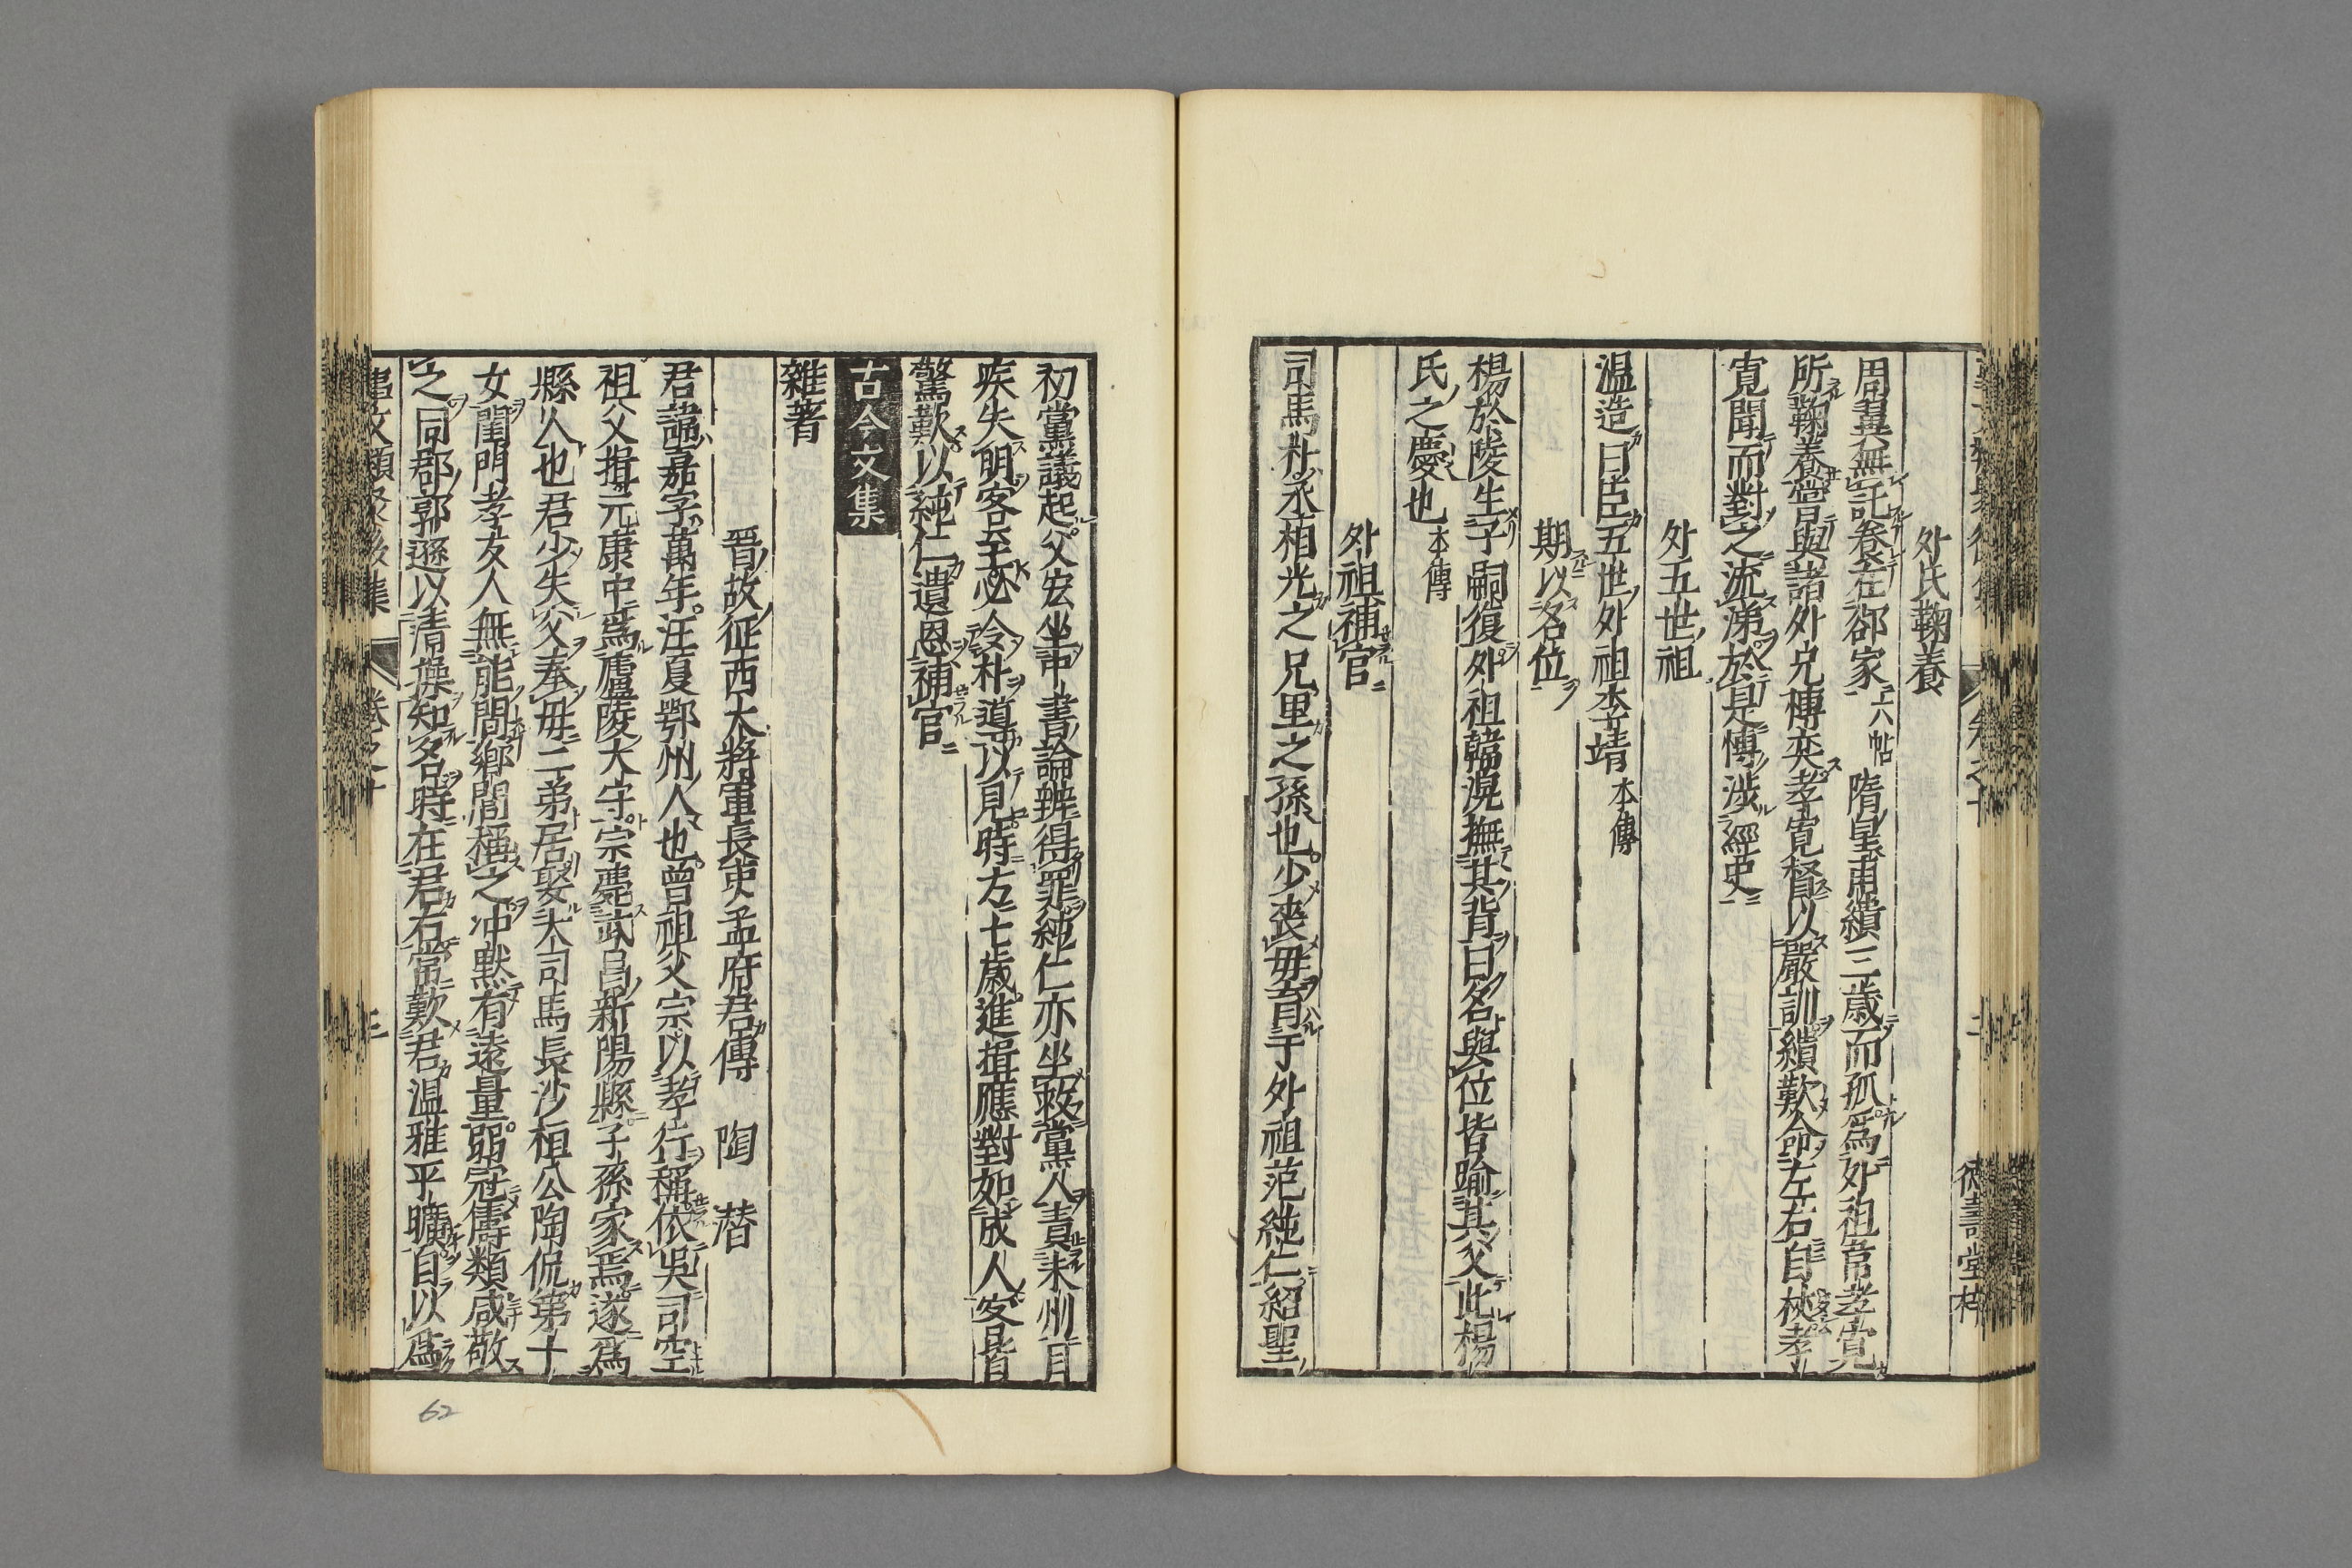 外氏鞠養
周翼無託養在郤家六帖 隋皇甫績三歲而孤爲外祖韋孝寛
所鞠養嘗與諸外兄博奕孝寛督以嚴訓績歎命左右自杖孝
寛聞而對之流涕於是博涉經史
外五世祖
温造曰臣五世外祖李靖本傳
期以名位
楊於陵生子嗣復外祖韓滉撫其背曰名與位皆踰其父此楊
氏之慶也本傳
外祖補官
司馬朴丞相光之兄里之孫也少喪毋育于外祖范純仁紹聖
初黨議起父宏坐中書論辨得罪純仁亦坐救黨人責永州目
疾失明客至必令朴導以見時方七歲進揖應對如成人客皆
驚歎以純仁遺恩補官
古今文集
雜著
晋故征西大將軍長史孟府君傳 陶 潜
君諱嘉字萬年江夏鄂州人也曾祖父宗以孝行稱依吳司空
祖父揖元康中爲廬陵大守宗薨武昌新陽縣子孫家焉遂爲
縣人也君少失父奉毋二弟居娶大司馬長沙桓公陶侃第十
女閨門孝友人無能間鄉閭稱之冲默有遠量弱冠儔類咸敬
之同郡郭遜以清操知名時在君右常歎君温雅平曠自以爲
事文類聚後集 卷之十 三
62